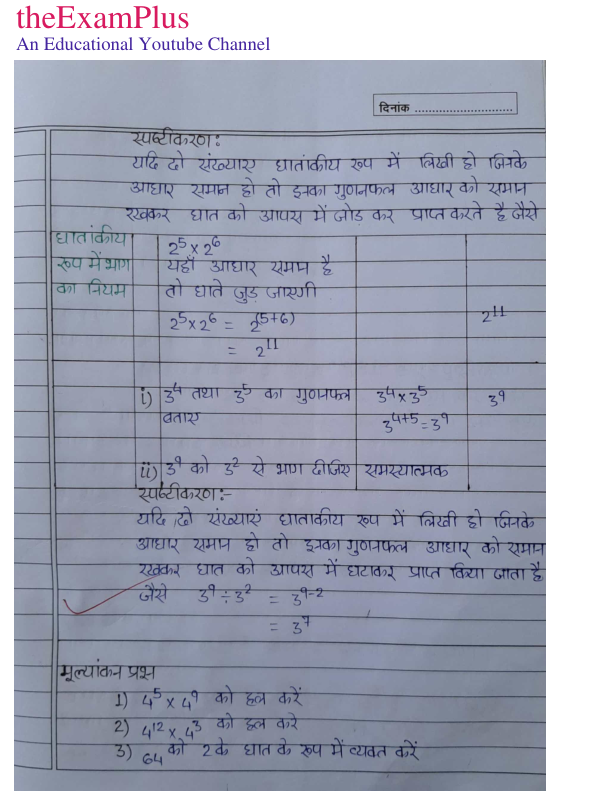 theExamPlus
An Educational Youtube Channel
दिनांक ............................
स्पष्टीकरण:
यदि दो संख्याए घातांकीय रूप में लिखी हो जिनके
आधार समान हो तो इनका गुणनफल आधार को समान
रखकर घात को आपस में जोड़ कर प्राप्त करते है जैसे
घातांकीय
रूप में भाग
का नियम
2⁵ x 2⁶
यहाँ आधार समान है
तो घाते जुड़ जाएगी
2⁵ x 2⁶ = 2⁽⁵⁺⁶⁾ 2¹¹
= 2¹¹
i) 3⁴ तथा 3⁵ का गुणनफल 3⁴ x 3⁵ 3⁹
बताए 3⁴⁺⁵ = 3⁹
ii) 3⁹ को 3² से भाग दीजिए समस्यात्मक
स्पष्टीकरण:-
यदि दो संख्याएं घातांकीय रूप में लिखी हो जिनके
आधार समान हो तो इनका गुणनफल आधार को समान
रखकर घात को आपस में घटाकर प्राप्त किया जाता है
जैसे 3⁹ ÷ 3² = 3⁹⁻²
= 3⁷
मूल्यांकन प्रश्न
1) 4⁵ x 4⁹ को हल करें
2) 4¹² x 4³ को हल करे
3) 64 को 2 के घात के रूप में व्यक्त करें